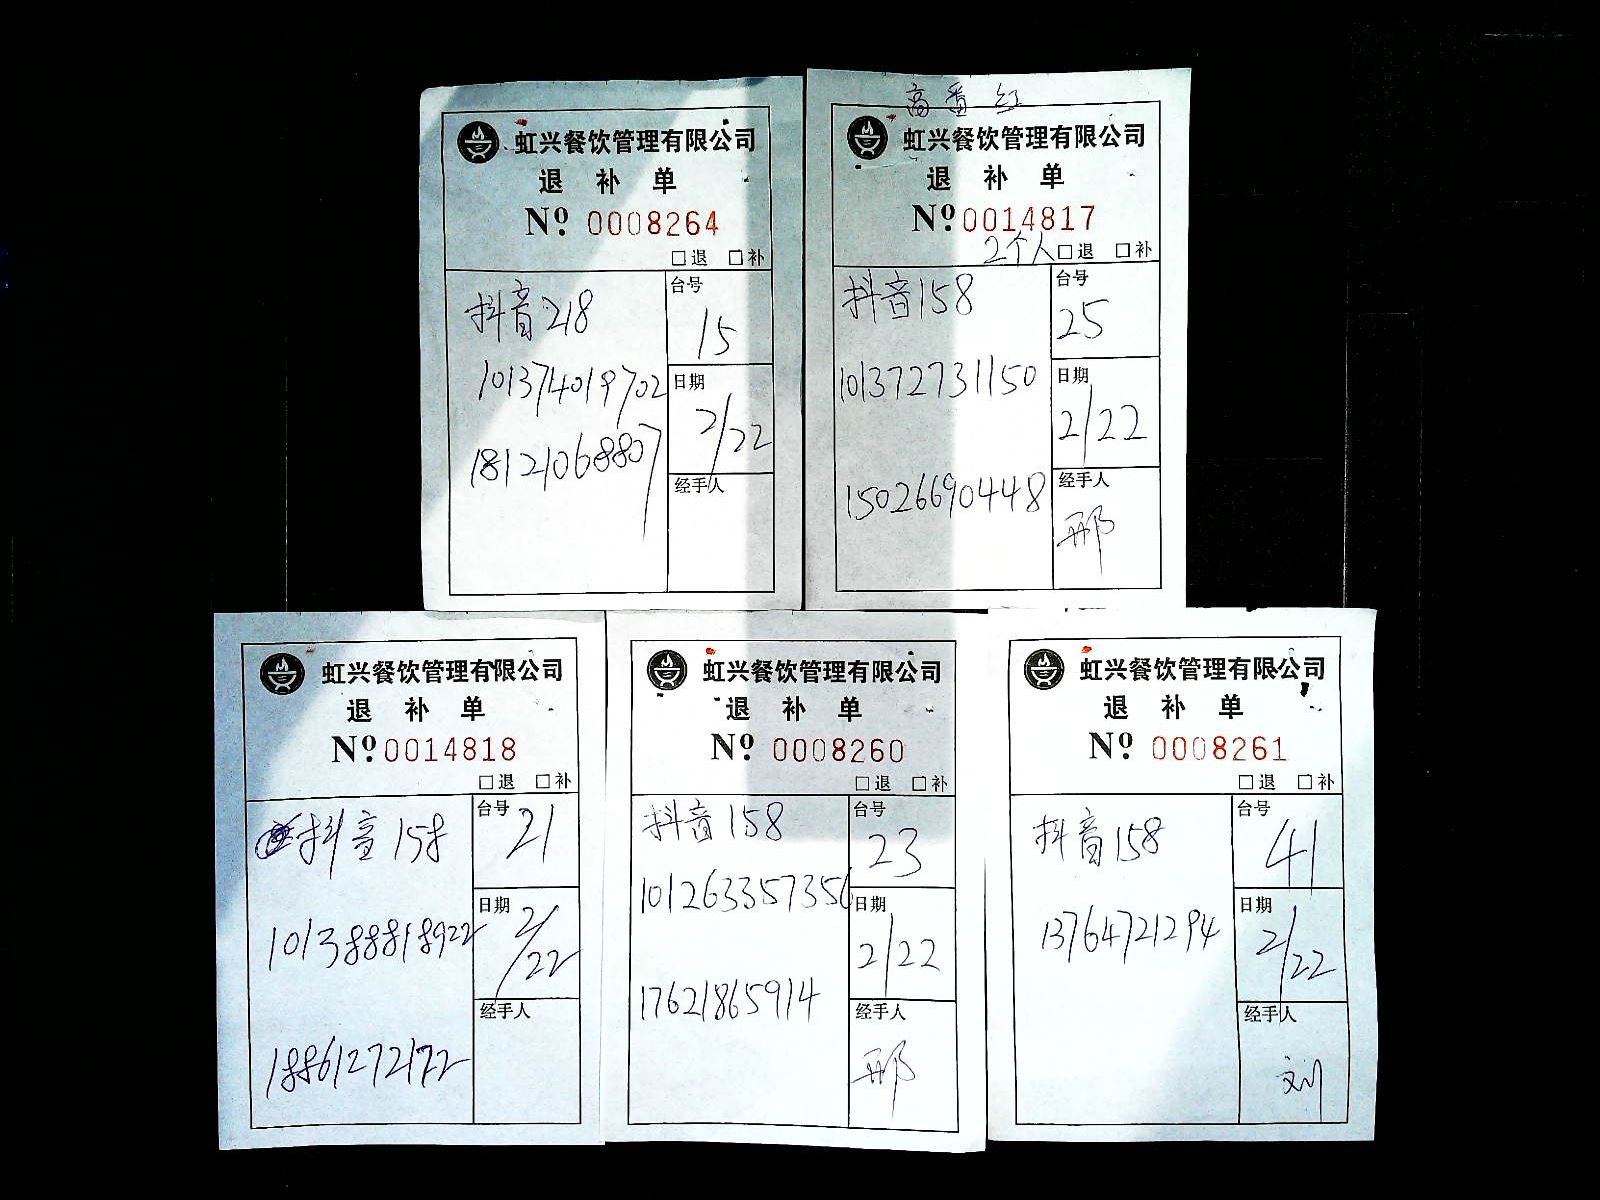 虹兴餐饮管理有限公司
退 补 单
Nº 0008264
□退 □补
抖音218
101374019702
18121068807
台号
15
日期
2/22
经手人
高番红
虹兴餐饮管理有限公司
退 补 单
Nº 0014817
2个人 □退 □补
抖音158
101372731150
15026690448
台号
25
日期
2/22
经手人
邢
虹兴餐饮管理有限公司
退 补 单
Nº 0014818
□退 □补
抖音158
101388818922
18861272172
台号
21
日期
2/22
经手人
虹兴餐饮管理有限公司
退 补 单
Nº 0008260
□退 □补
抖音158
101263357356
17621865914
台号
23
日期
2/22
经手人
邢
虹兴餐饮管理有限公司
退 补 单
Nº 0008261
□退 □补
抖音158
13764721294
台号
41
日期
2/22
经手人
刘